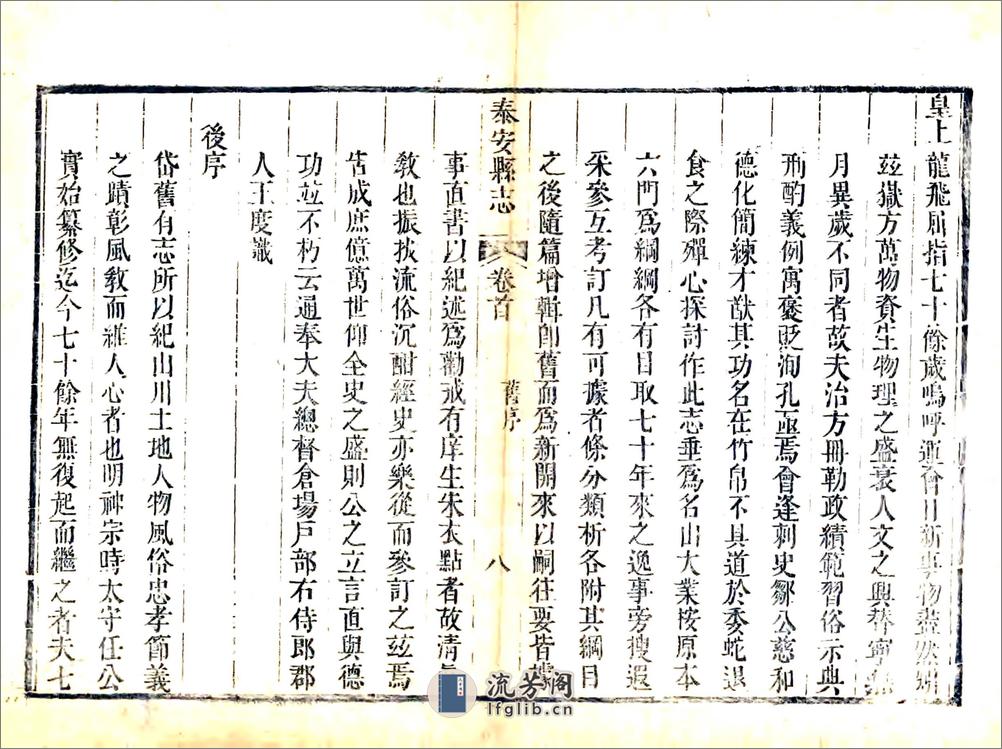 皇上龍飛屈指七十餘歲嗚呼運會日新事物
茲嶽方萬物資生物理之盛衰人文之興替寧無
月異歲不同者故夫治方冊勒政績範習俗示典
刑酌義例寓褒貶洵孔亟焉會逢刺史鄒公慈和
德化簡練才猷其功名在竹帛不具道於委蛇退
食之際殫心探討作此志垂爲名山大業按原本
六門爲綱綱各有目取七十年來之逸事旁搜遐
采參互考訂凡有可據者條分類析各附其綱目
之後隨篇增輯卽舊而爲新開來以嗣往要皆據
泰安縣志
卷首
舊序
八
事直書以紀述爲勸戒有庠生宋衣點者故淸
敎也振拔流俗沉酣經史亦樂從而參訂之茲焉
告成庶億萬世仰全史之盛則公之立言直與德
功並不朽云通奉大夫總督倉場戶部右侍郎郡
人王度識
後序
岱舊有志所以紀山川土地人物風俗忠孝節義
之蹟彰風敎而維人心者也明神宗時太守任公
實始纂修迄今七十餘年無復起而繼之者夫七
流芳閣
lfglib.cn